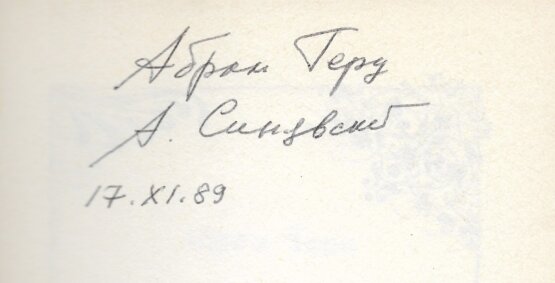 Абрам Терц
А. Синявский
17.XI.89